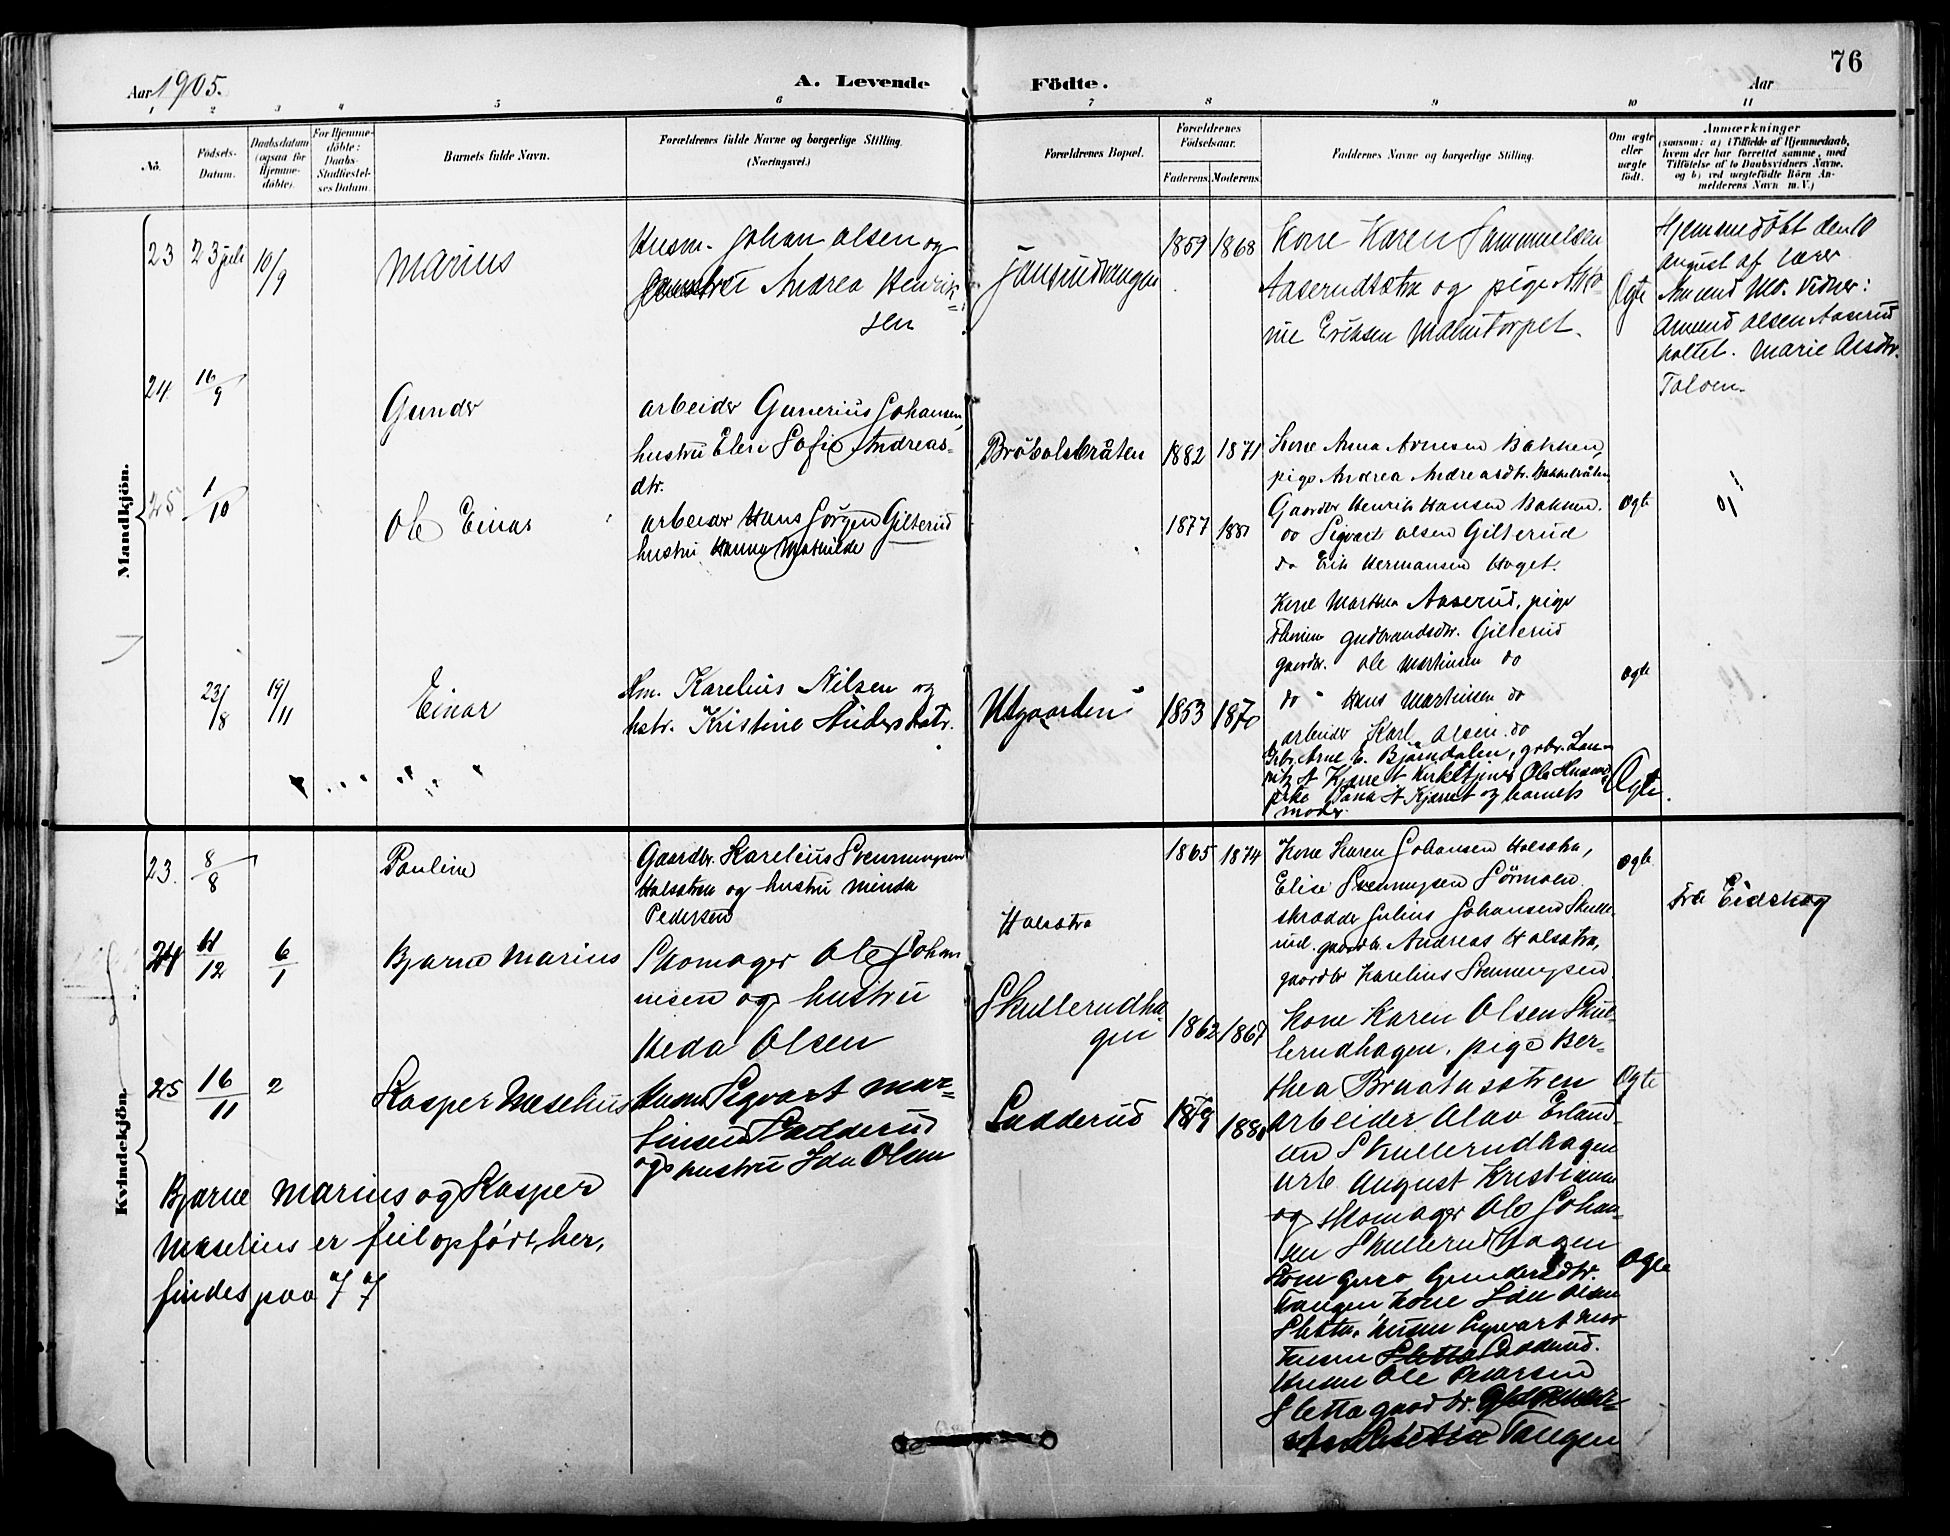 76
Aar 1905.
A. Levende Födte.
Aar
1 2 3 4 5 6 7 8 9 10 11
No.
Födsels-Datum.
Daabsdatum (ogsaa for Hjemme-döbte).
For Hjemme-döbte: Daabs-Stadfæstel-ses Datum.
Barnets fulde Navn.
Forældrenes fulde Navne og borgerlige Stilling. (Næringsvei.)
Forældrenes Bopæl.
Forældrenes Födselsaar.
Faderens. Moderens.
Faddernes Navne og borgerlige Stilling.
Om ægte eller uægte födt.
Anmærkninger
(saasom: a) i Tilfælde af Hjemmedaab,
hvem der har forrettet samme, med
Tilföielse af to Daabsvidners Navne.
og b) ved uægtefödte Börn An-
melderens Navn m. V.)
Mandkjön.
23 23 juli 10/9
Marius
Husm. Johan Olsen og
Andrea Henrik-
sen
1859 1868
Kone Karen Sammuelsen
Aaserudsætra og pige
Eriksen Malmtorpet.
Ægte
Hjemmedöbt den 10
August af lærer
Amund Mo. Vidner:
Amund Olsen Aaserud
holtet. Marie Olsdtr.
24. 16/9
Gunder
arbeider Gunerius Johansen,
hustru Eleu Sofie Andreas-
dtr.
Bröbølsbråten 1882 1871
Kone Anna Arnesen Bakken,
pige Andrea Andreasdtr.
ægte
25 1/10
Ole Einar
arbeider Hans Jörgen Gilterud
hustru Hanna Mathilde
1877
Gaardbr Henrik Hansen Bakken.
do Sigvart Olsen Gilterud
do Erik Hermansen Haget.
Kone Marthea Aaserud, pige
Gudbrandsdtr. Gilterud
gaardbr. Ole Martinsen do
do " Hans Martinsen do
arbeider Karl Olsen. do
ægte
23/8 19/11
Einar
Hm. Karelius Nilsen og
hstr. Kristine Andersdatr.
Utgaarden 1853 1870
Gbr. Arne E. Bjørndalen, grbr. Lau-
ritz A Kjærret Ole
pike A Kjærret og barnets
moder.
Ægte.
Kvindekjön.
23. 8/8
Pauline
Gaardbr. Karelius Svenningsen
Halsætra og hustru Minda
Pedersen
Halsætra
1865 1874
Kone Karen Johansen Halsætra,
Elise Svenningsen Sörmoen
skrædder Julius Johansen Skulle-
rud. gaardbr Andreas Halsætra,
gaardbr Karelius Svenningsen.
ægte
Fra Eidskog
24 /12 6/1
Bjarne Marius
Skomager Ole Johan
nesen og hustru
Heda Olsen
Skullerudha
gen 1862 1867
Kone Karen Olsen Skul-
lerudhagen. pige Ber-
thea Braatasætren
arbeider Olav Erland-
sen Skullerudhagen
arb. August Kristiansen
og skomager Ole Johan-
sen Skullerudhagen
Ægte
25 16/11 2
Kasper Meselius
Husm Sigvart Mar-
tinsen Ladderud
og hustru Ida Olsen
Ladderud 1879
Kone Guro Gundersdtr.
Tangen Kone Ida Olsen
Sletta. Husm Sigvart Mar
tinsen Sletta Ladderud.
Husm Ole
Sletta gaardbr.
Tangen
Ægte
Bjarne Marius og Kasper
Meselius er feil opfört, her,
findes paa 77